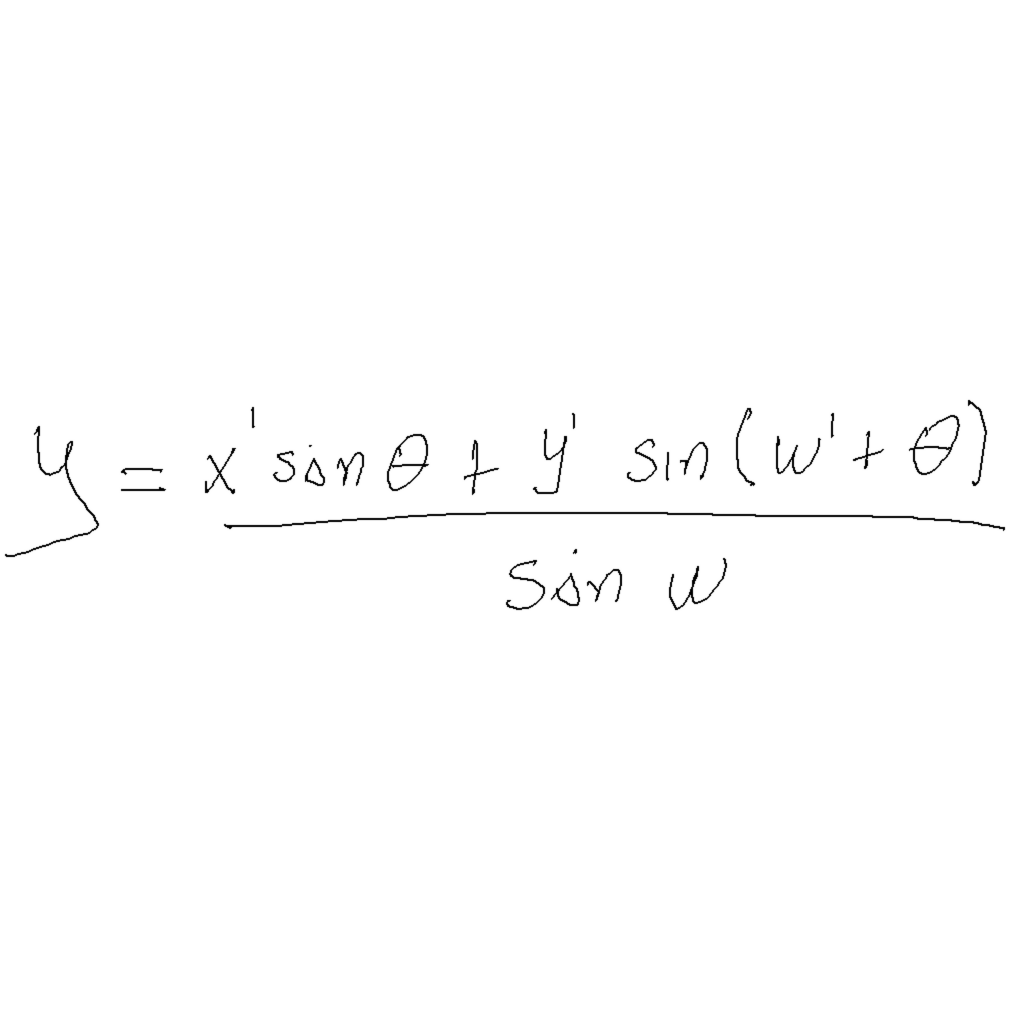 y = x' sin θ + y' sin (w' + θ)
sin w